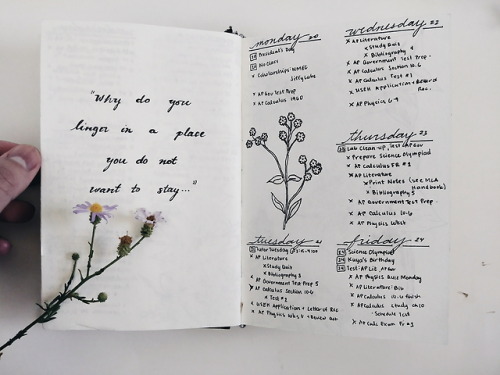 "Why do you
linger in a place
you do not
want to stay..."
monday 20
President's Day
No Class
x Scholarships:
x AP Gov Test Prep
x AP Calculus
tuesday 21
Tutor Tuesday
x AP Literature
x Study Quiz
x Bibliography 5
x AP Government Test Prep 5
x AP Calculus Section 10.6
x Test #2
x USEM Application + Letter of Rec
x AP Physics + Review
wednesday 22
x AP Literature
x Study Quiz
x Bibliography
x AP Government Test Prep
x AP Calculus Section 10.6
x AP Calculus Test #1
x USEM Application + Letter of
Rec.
x AP Physics 6-9
thursday 23
Lab Clean-up, Test AP Gov
x Prepare Science Olympiad
x AP Calculus FR #1
x AP Literature
x Print Notes (see MLA
Handbook)
x Bibliography 5
x AP Government Test Prep
x AP Calculus 10.6
x AP Physics
friday 24
Science Olympiad
Kaya's Birthday
Test: AP Lit, AP Gov
x AP Physics Quiz Monday
x AP Literature: Bib
x AP Calculus 10.6 finish
x AP Calculus study ch 10
- Schedule Test
x AP Calc Exam Fr #3